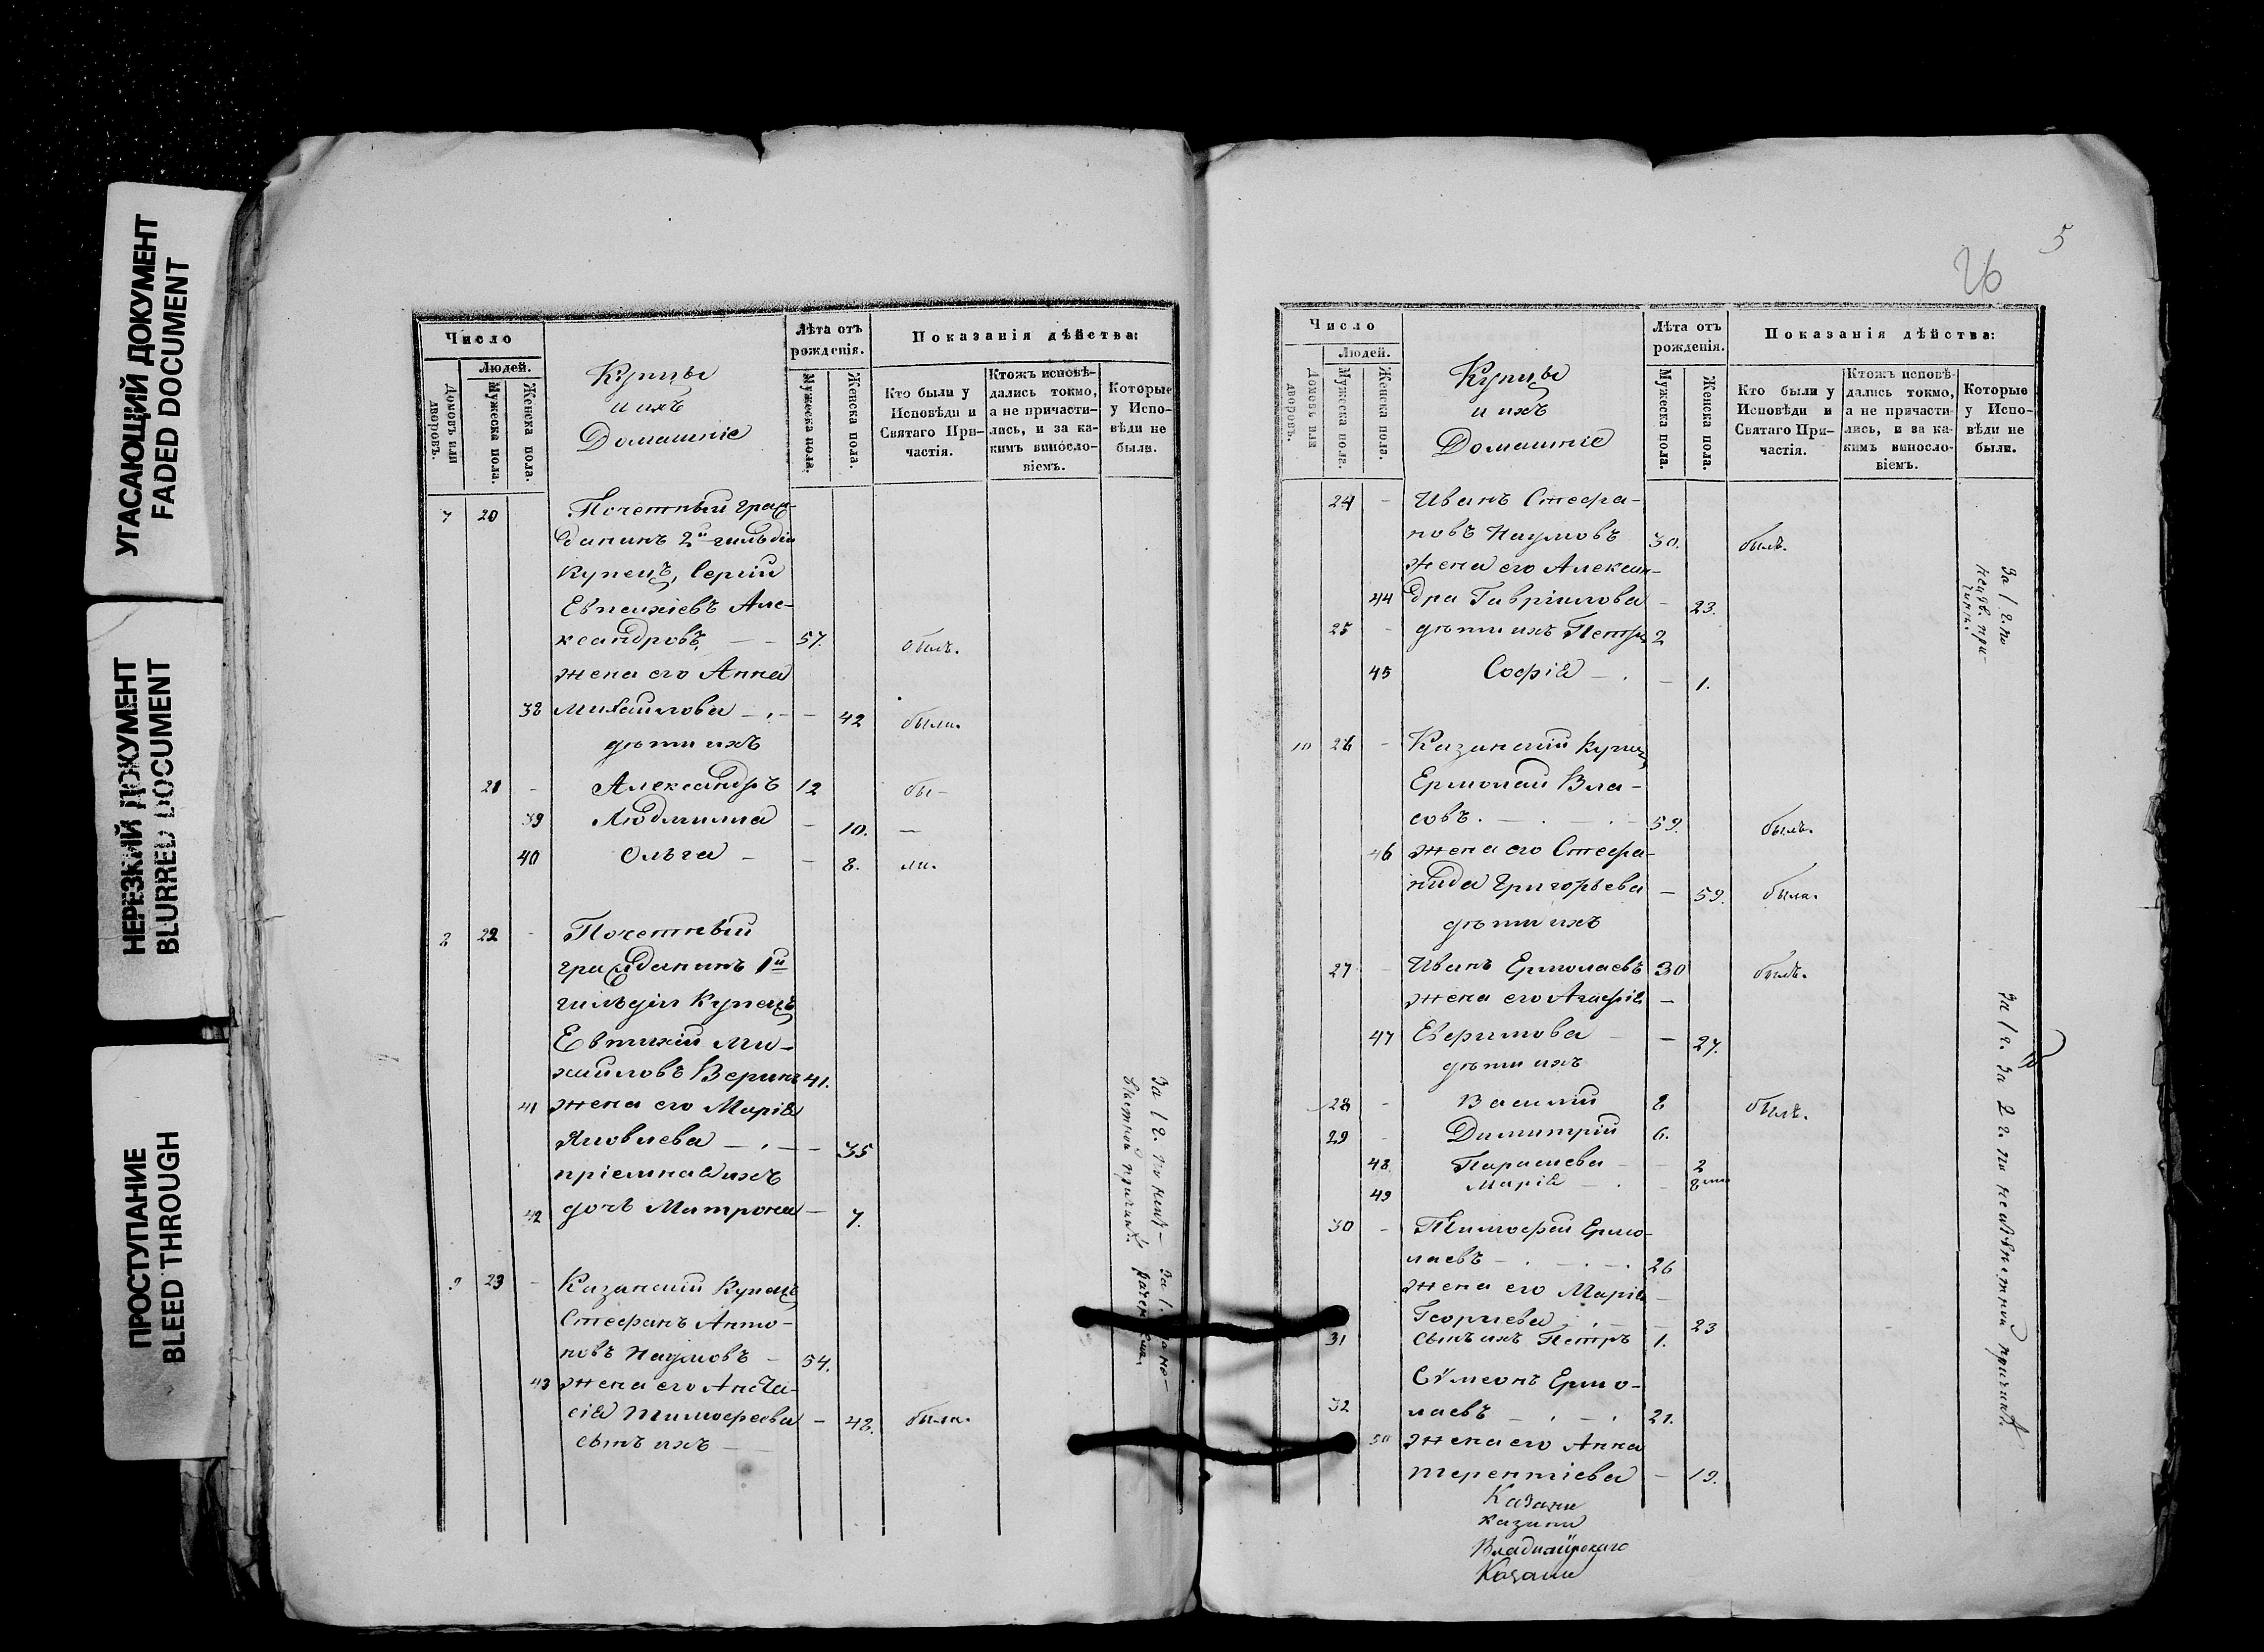 УГАСАЮЩИЙ ДОКУМЕНТ
FADED DOCUMENT
НЕРЕЗКИЙ ДОКУМЕНТ
BLURRED DOCUMENT
ПРОСТУПАНИЕ
BLEED THROUGH
Число
Людей.
Домовъ или дворовъ.
Мужеска пола.
Женска пола.
Купцы
и ихъ
Домашніе
Лѣта отъ
рожденія.
Мужеска пола.
Женска пола.
Показанія дѣйства:
Кто были у
Исповѣди и
Святаго При-
частія.
Ктожъ исповѣ-
дались токмо,
а не причасти-
лись, и за ка-
кимъ виносло-
віемъ.
Которые
у Испо-
вѣди не
были.
7 20 Почетный граж-
данинъ 2й гильдіи
купецъ, Сергій
Евпсихіевъ Але-
ксандровъ 57. былъ.
жена его Анна
38 Михайлова 42 была.
дѣти ихъ
21 - Александръ 12 бы-
39 Людмилла - 10. —
40 Ольга - - 8. ли.
8 22 - Почетный
гражданинъ 1й
гильдіи Купецъ
Евтихій Ми-
хайловъ 41.
41 жена его Марія
Яковлева - 35
пріемная ихъ
42 дочь Матрона - 7.
9 23 - Казанскій Купецъ
Стефанъ Анто-
новъ Наумовъ - 54.
43 жена его Анаста-
сія Тимофеева - 48. была.
сынъ ихъ
5
26
Число
Людей.
Домовъ или дворовъ.
Мужеска пола.
Женска пола.
Купцы
и ихъ
Домашніе
Лѣта отъ
рожденія.
Мужеска пола.
Женска пола.
Показанія дѣйства:
Кто были у
Исповѣди и
Святаго При-
частія.
Ктожъ исповѣ-
дались токмо,
а не причасти-
лись, и за ка-
кимъ виносло-
віемъ.
Которые
у Испо-
вѣди не
были.
24 - Иванъ Стефа-
новъ Наумовъ 30. былъ.
жена его Алексан-
44 дра Гавріилова - 23.
25 - дѣти ихъ Петръ 2
45 Софія - 1.
10 26 - Казанскій Купецъ
Ермолай Вла-
совъ. 59. былъ.
46 жена его Стефа-
нида Григорьева - 59. была.
дѣти ихъ
27 - Иванъ Ермолаевъ 30 былъ.
жена его Агафія -
47 Евфимова - 27.
дѣти ихъ
28 - Василій 8 былъ.
29 - Димитрій 6.
48 Параскева - 2
49 Марія - 8
30 - Тимофей Ермо-
лаевъ 26
жена его Марія -
Георгіева - 23
31 сынъ ихъ Петръ 1.
Сѵмеонъ Ермо-
32 лаевъ 21.
50 жена его Анна
Терентіева - 19.
За 1 г. За 2 г. по неизвѣстной причинѣ.
Казани
Казани
Владимірскаго
Казани